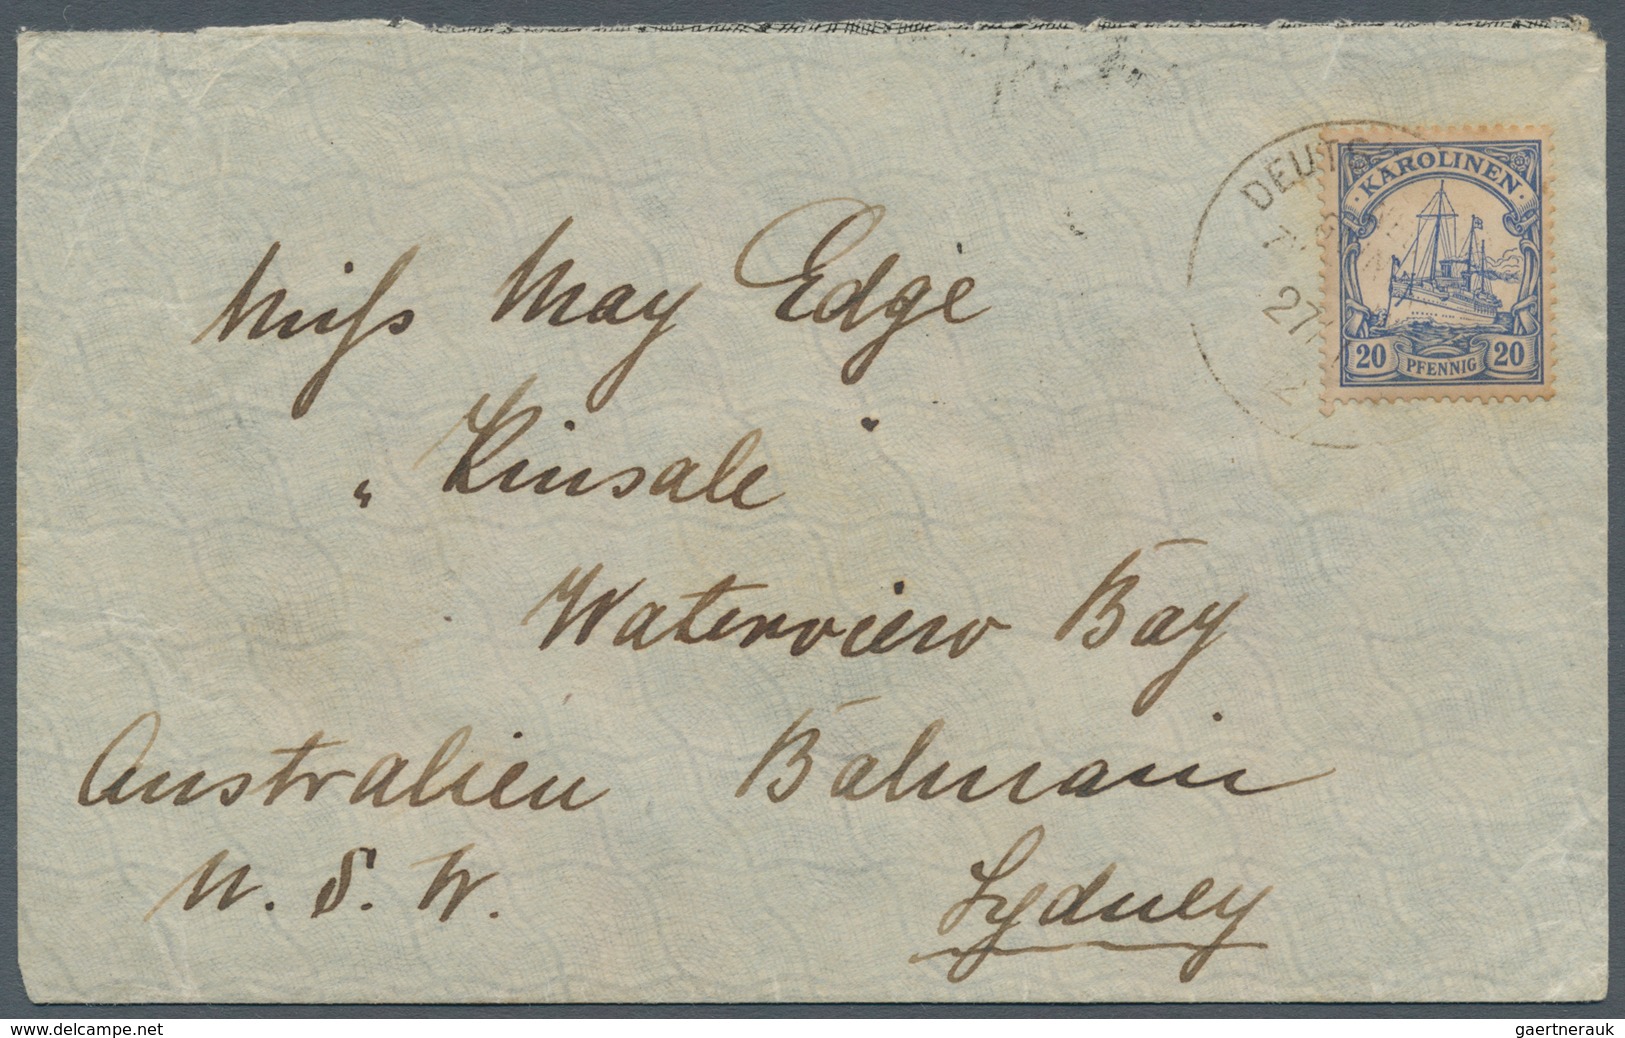 DEUTSC
27
KAROLINEN
20 PFENNIG 20
Miss May Edge
"Kinsale"
Waterview Bay
Australien Balmain
N. S. W. Sydney
www.delcampe.net
gaertnerauk